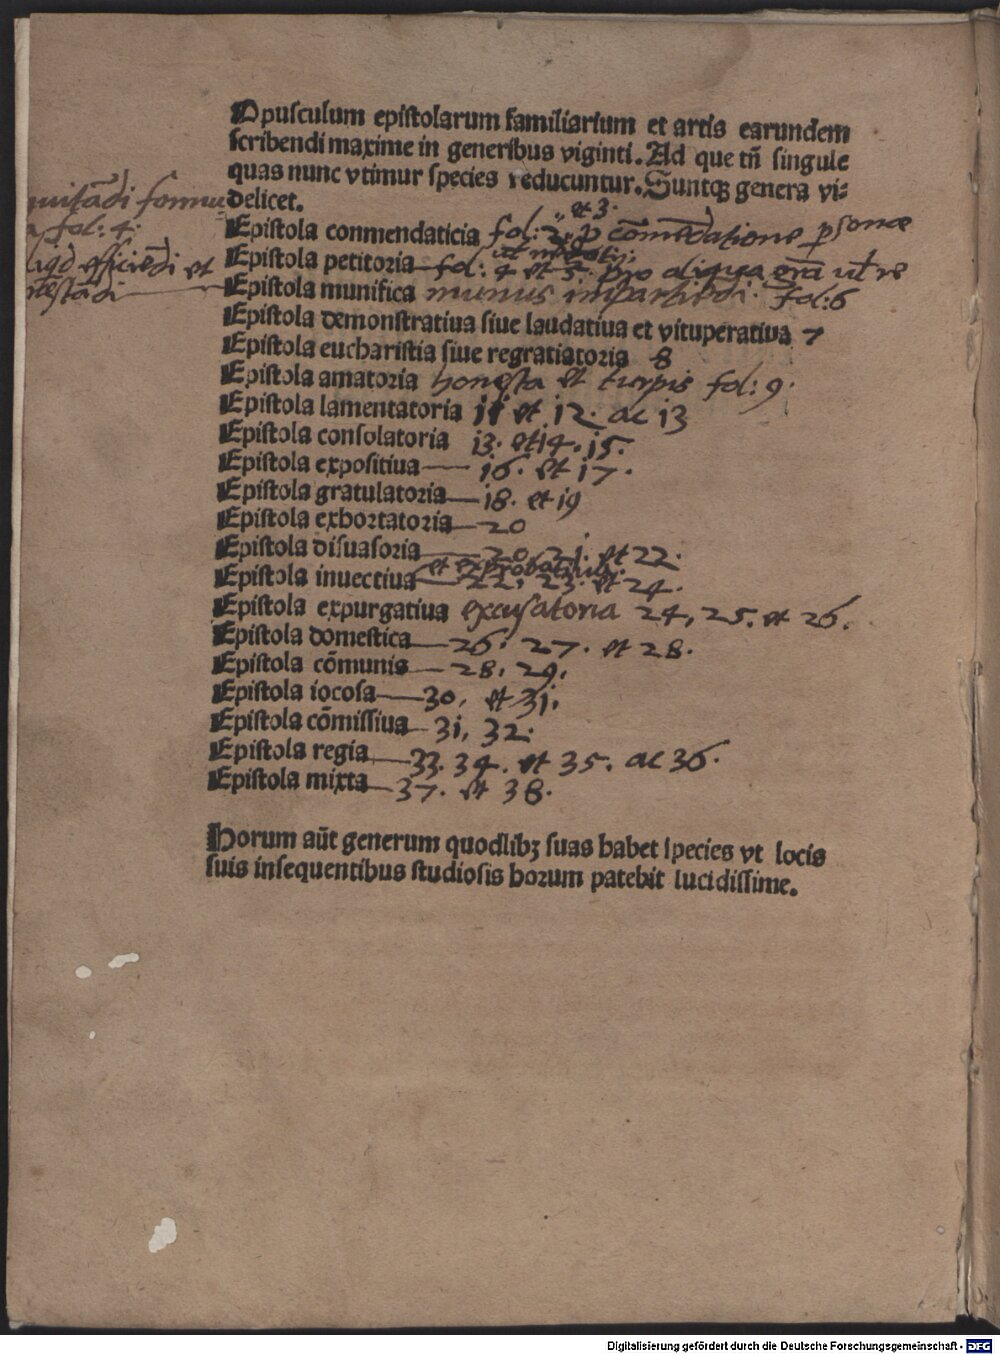 Opusculum epistolarum familiarium et artis earundem
scribendi maxime in generibus viginti. Ad que tñ singule
quas nunc vtimur species reducuntur. Suntqꝫ genera vi-
delicet.
fol: 4.
efficiēdi et
Epistola conmendaticia fol: 2. et 3. p̱ cōmēdatione psonae
Epistola petitoria fol: 4 et 5. pro aliqua grā ul re
Epistola munifica munus impartiēdi. fol: 6
Epistola demonstratiua siue laudatiua et vituperatiua 7
Epistola eucharistia siue regratiatoria 8
Epistola amatoria honesta et turpis fol: 9.
Epistola lamentatoria 11 et 12. ac 13
Epistola consolatoria 13. et 14. 15.
Epistola expositiua 16. et 17.
Epistola gratulatoria 18. et 19
Epistola exhortatoria 20
Epistola disuasoria 20. 21. et 22.
Epistola inuectiua et 22, 23. et 24.
Epistola expurgatiua excusatoria 24, 25. et 26.
Epistola domestica 26. 27. et 28.
Epistola cōmunis 28, 29.
Epistola iocosa 30, et 31.
Epistola cōmissiua 31, 32.
Epistola regia 33. 34. et 35. ac 36.
Epistola mixta 37. et 38.
Horum aūt generum quodlibꝫ suas habet species vt locis
suis insequentibus studiosis horum patebit lucidissime.
Digitalisierung gefördert durch die Deutsche Forschungsgemeinschaft - DFG